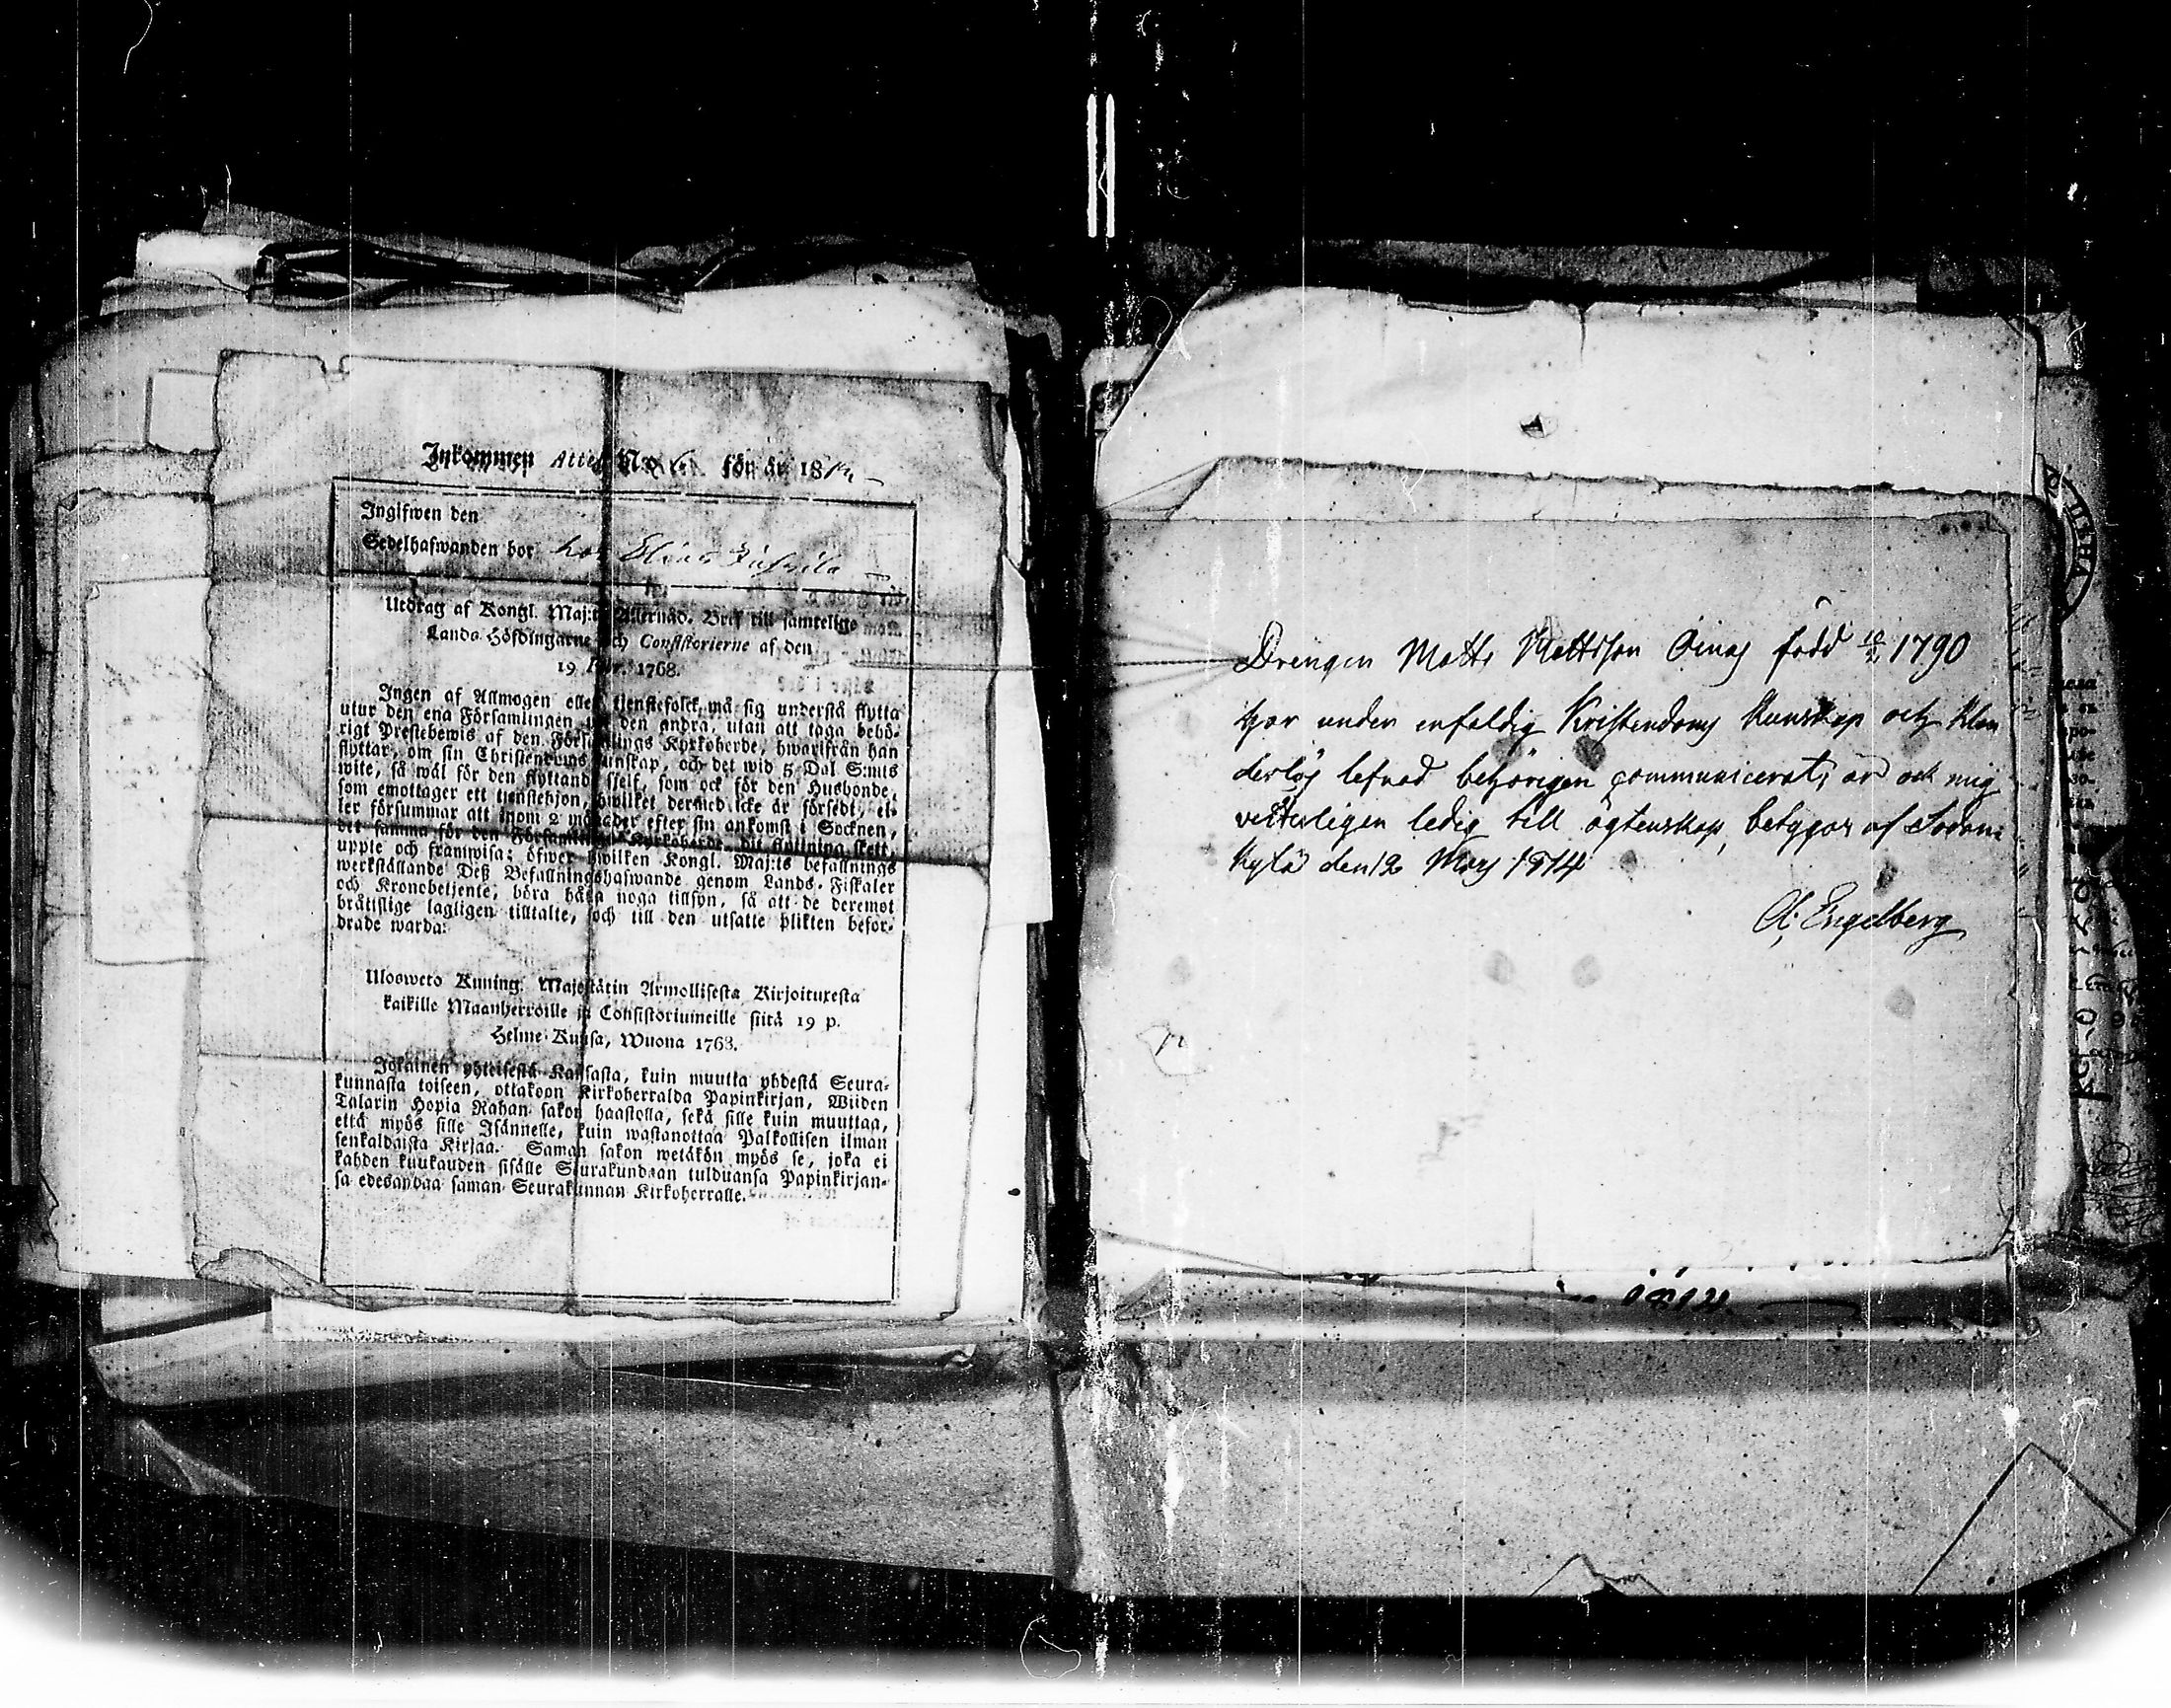 Inkommen Attest N:o 6. för år 181
Ingifwen den
Sedelhafwanden bor hos Elias
Utdrag af Kongl. Maj:ts Allernåd. Bref till samtelige
Lands-Höfdingarne och Consistorierne af den
19 Febr. 1768.
Ingen af Allmogen eller tjenstefolck, må sig understå flytta
utur den ena Församlingen uti den andra, utan att taga behö-
rigt Prestebewis af den Församlings Kyrkoherde, hwarifrån han
flyttar, om sin Christendoms kunskap, och det wid 5 Dal S:mts
wite, så wäl för den flyttande sjelf, som ock för den Husbonde,
som emottager ett tjenstehjon, hwilket dermed icke är försedt, el-
ler försummar att inom 2 månader efter sin ankomst i Socknen,
det samma för den Församlings Kyrkoherde, dit flyttning skett,
uppte och framwisa; öfwer hwilken Kongl. Maj:ts befallnings
werkställande Deß Befallningshafwande genom Lands-Fiskaler
och Kronobetjente, böra hålla noga tillsyn, så att de deremot
bråttslige lagligen tilltalte, och till den utsatte plikten befor-
drade warda.
Ulosweto Kuning. Majestätin Armollisesta Kirjoituxesta
kaikille Maanherroille ja Consistoriumeille siitä 19 p.
Helme-Kuusa, Wuona 1768.
Jokainen yhteisestä Kansasta, kuin muutta yhdestä Seura-
kunnasta toiseen, ottakoon Kirkoherralda Papinkirjan, Wiiden
Talarin Hopia Rahan sakon haastolla, sekä sille kuin muuttaa,
että myös sille Isännelle, kuin wastanottaa Palkollisen ilman
senkaldaista Kirjaa. Saman sakon wetäkön myös se, joka ei
kahden kuukauden sisälle Seurakundaan tulduansa Papinkirjan-
sa edesandaa saman Seurakunnan Kirkoherralle.
Drengen Matts Mattsson Oinas född 10/2 1790
har under enfaldig Kristendoms Kunskap och klan
derlös lefnad behörigen communicerat, är ock mig
vetterligen ledig till ägtenskap, betygar af Sodan-
kylä den 12 Mars 1814
Engelberg